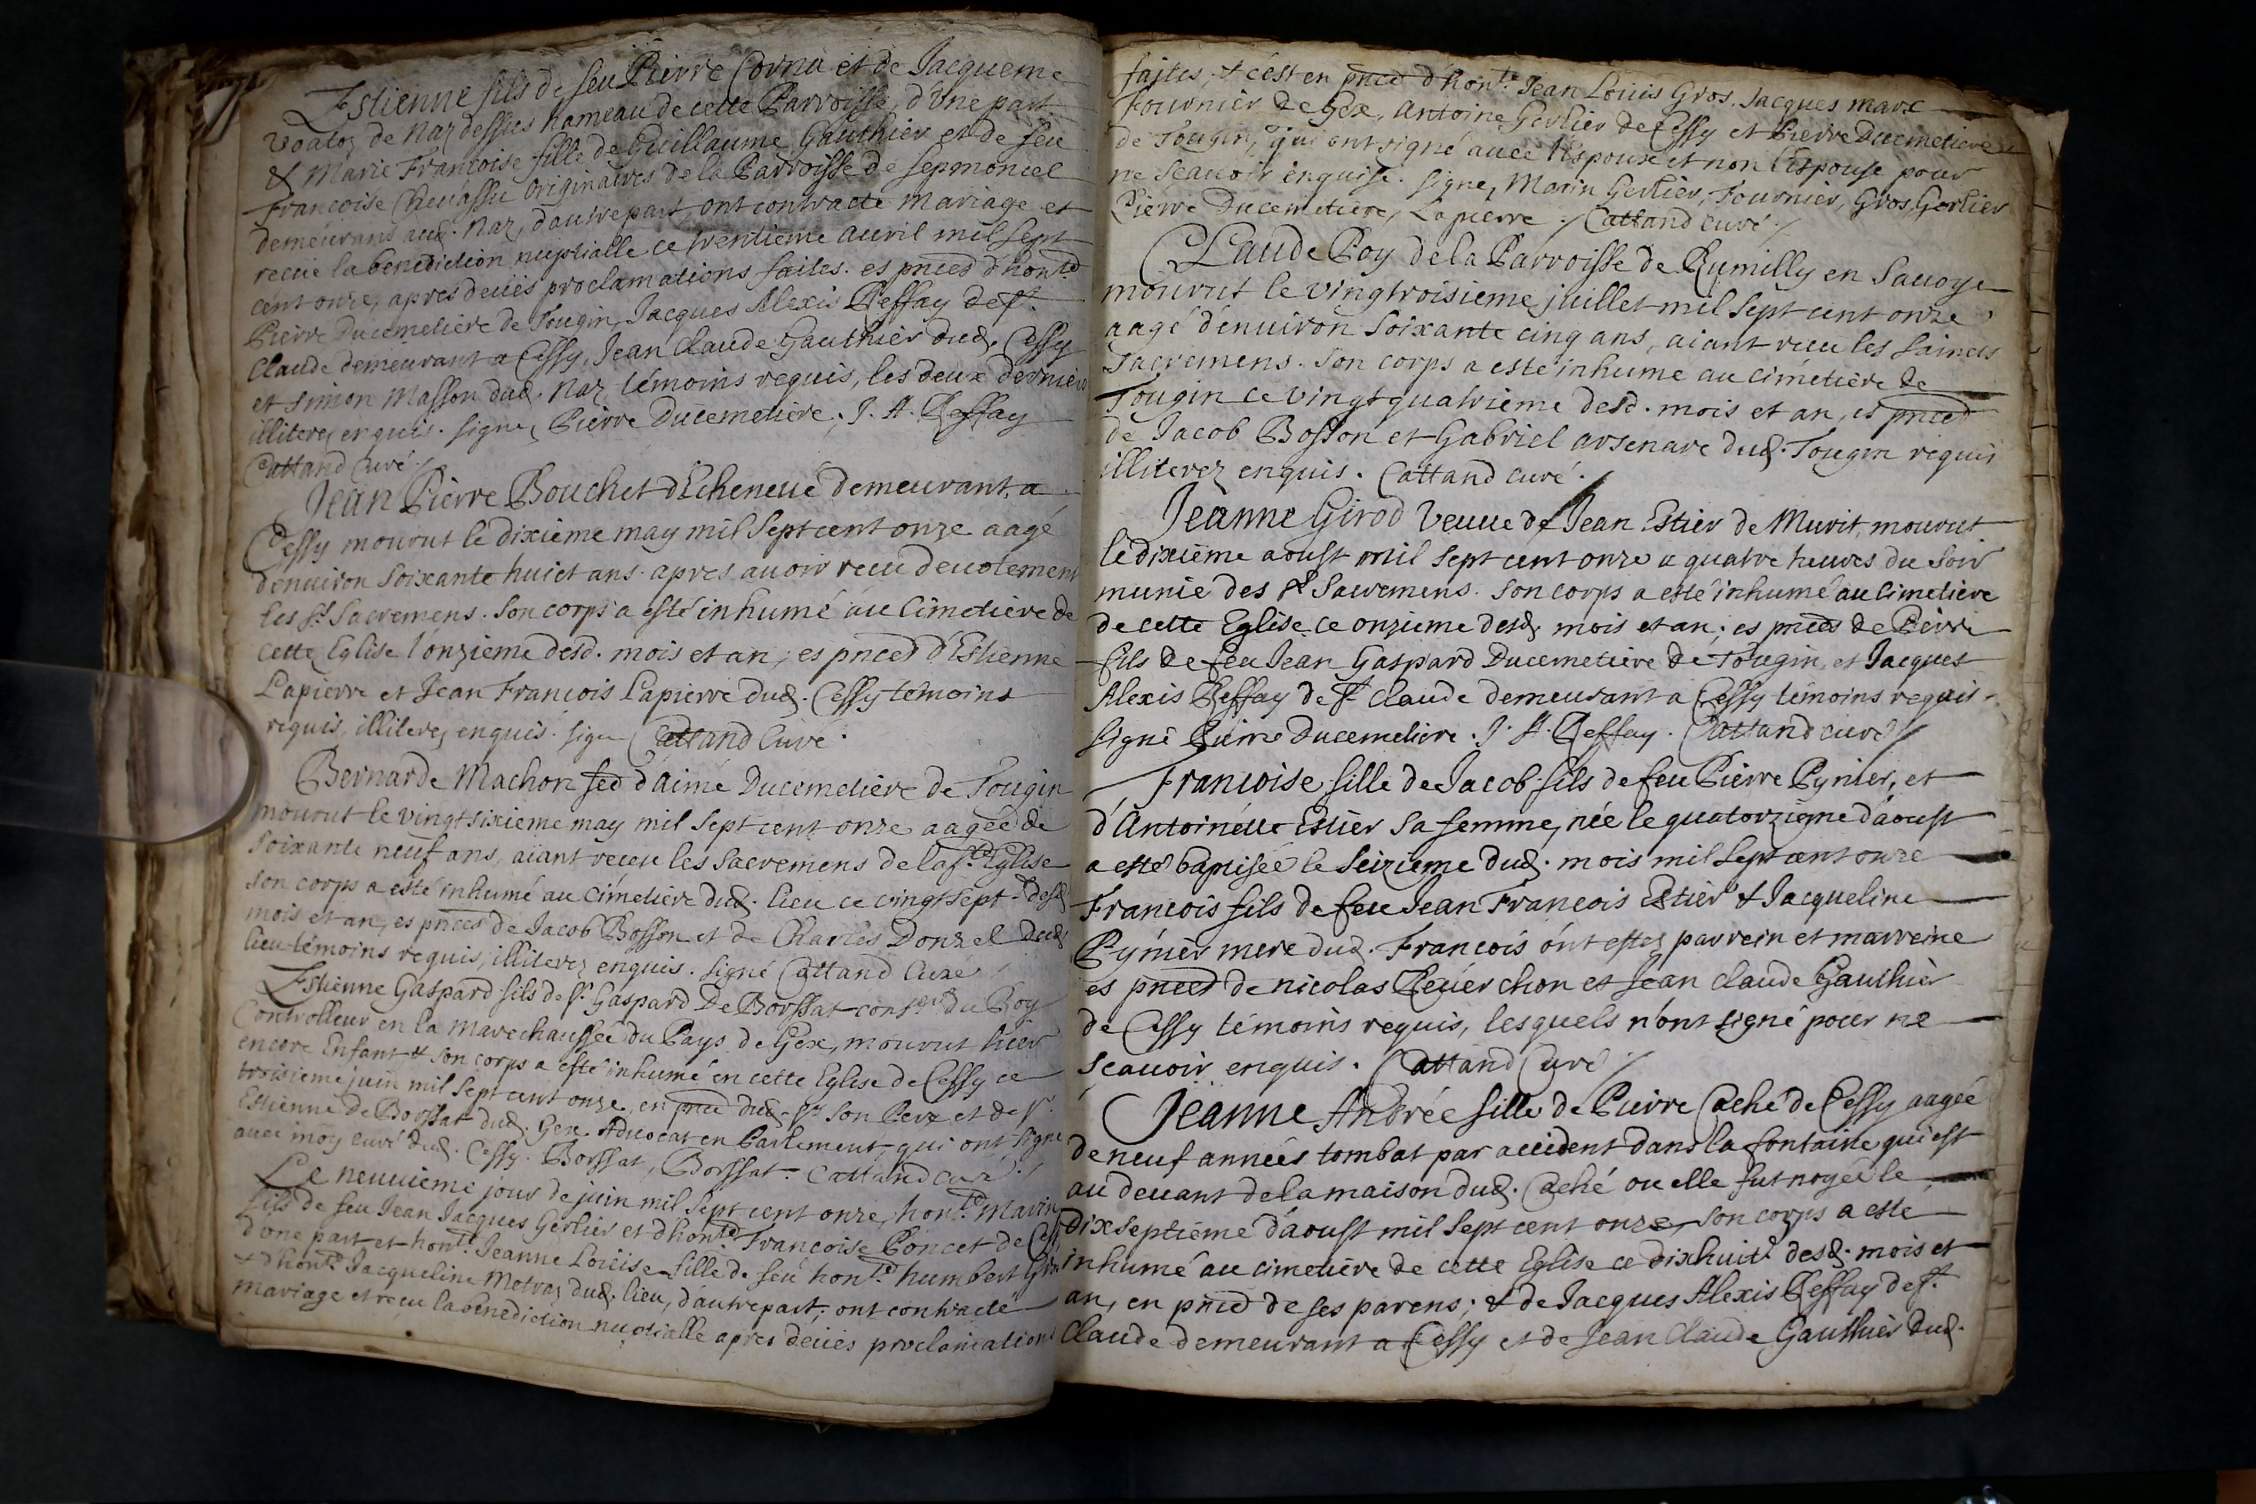 Estienne fils de feu Pierre Cornu et de Jacqueme
de Naz dessus hameau de cette Parroisse, d'une part
& Marie Francoise fille de Guillaume Gauthier et de feu
Francoise Chevassu originaires de la Parroisse de Sepmoncel
demeurans aud. Naz, d'autre part, ont contracte mariage et
receu la benediction nuptialle ce trentieme avril mil sept
cent onze, apres deües proclamations faites. es pnces d'hontes
Pierre Ducemetiere de Tougin, Jacques Alexis Reffay de St.
Claude demeurant a Cessy, Jean Claude Gauthier dud. Cessy
et Simon Masson dud. Naz témoins requis, les deux derniers
illiterez enquis. signez Pierre Ducemetiere, J. A. Reffay
Cattand Curé
Jean Pierre Bouchet d'Echenevé demeurant a
Cessy mourut le dixieme may mil sept cent onze aagé
d'enuiron soixante huict ans apres auoir receu deuotement
les Sts Sacremens. Son corps a esté inhumé au Cimetiere de
cette Eglise l'onzieme desd. mois et an, es pnces d'Estienne
Lapierre et Jean Francois Lapierre dud. Cessy témoins
requis, illiterez enquis. signé Cattand Curé.
Bernarde Machon fe d'aimé Ducemetiere de Tougin
mourut le vingtsixieme may mil sept cent onze aagée de
soixante neuf ans, aiant receu les Sacremens de la Ste Eglise
son corps a esté inhumé au Cimetiere dud. lieu ce vingt sept desd
mois et an, es pnces de Jacob Bosson et de Charles Donzel dud
lieu témoins requis, illiterez enquis. signé Cattand Curé
Estienne Gaspard fils de Sr. Gaspard De Borssat du Roy
Controlleur en la Marechaussée du Pays de Gex, mourut hier
encore Enfant & son corps a esté inhumé en cette Eglise de Cessy ce
troisieme juin mil sept cent onze, en pnce dud. Sr. son Pere et de Sr.
Estienne de Borssat dud. Gex Aduocat en Parlement, qui ont signé
auec moy curé dud. Cessy. Borssat, Borssat. Cattand Curé
Le neuuieme jour de juin mil sept cent onze, honte. Marin
fils de feu Jean Jacques Gerlier et d'honte. Francoise Poncet de
d'une part et honte. Jeanne Loüise fille de feu honte. humbert
& d'honte. Jacqueline Motraz dud. lieu, d'autre part, ont contracté
mariage et receu la benediction nuptialle apres deües proclamations
faites, & c'est en pnce d'honte. Jean Louis Gros, Jacques Marc
Fournier de Gex, Antoine Gerlier de Cessy et Pierre Ducemetiere
de Tougin, qui ont signé auec l'Espoux et non l'Espouse pour
ne scauoir enquise. signez Marin Gerlier, Fournier, Gros, Gerlier
Pierre Ducemetiere, Lapierre / Cattand Curé /
Claude Roy de la Parroisse de Rumilly en Sauoye
mourut le vingtroisieme juillet mil sept cent onze
aagé d'enuiron soixante cinq ans, aiant receu les saincts
Sacremens. Son corps a esté inhumé au cimetiere de
Tougin ce vingt quatrieme desd. mois et an, es pnces
de Jacob Bosson et Gabriel arsenare dud. Tougin requis
illiterez enquis. Cattand Curé.
Jeanne Girod Veuue de Jean Estier de Murit, mourut
le dixieme aoust mil sept cent onze a quatre heures du soir
munie des Sts Sacremens. Son corps a esté inhumé au Cimetiere
de cette Eglise ce onzieme desd. mois et an; es pnces de Pierre
fils de feu Jean Gaspard Ducemetiere de Tougin, et Jacques
Alexis Reffay de St Claude demeurant a Cessy témoins requis.
Signé Pierre Ducemetiere. J. A. Reffay. Cattand Curé
Francoise fille de Jacob fils de feu Pierre Pynier, et
d'Antoinette Estier sa femme, née le quatorzieme d'aoust
a esté baptisée le seizieme dud. mois mil sept cent onze
Francois fils de feu Jean Francois Estier & Jacqueline
Pynier mere dud. Francois ónt estez parrein et marreine
es pnces de nicolas et Jean Claude Gauthier
de Cessy témoins requis, lesquels n'ont signé pour ne
scauoir enquis. Cattand Curé /
Jeanne Andrée fille de Pierre Caché de Cessy aagée
de neuf années tombat par accident dans la fontaine qui est
au deuant de la maison dud. Caché ou elle fut noyée le
dixseptieme d'aoust mil sept cent onze, son corps a esté
inhumé au cimetiere de cette Eglise ce dixhuite desd. mois et
an, en pnce de ses parens; & de Jacques Alexis Reffay de St.
Claude demeurant a Cessy et de Jean Claude Gauthier dud.